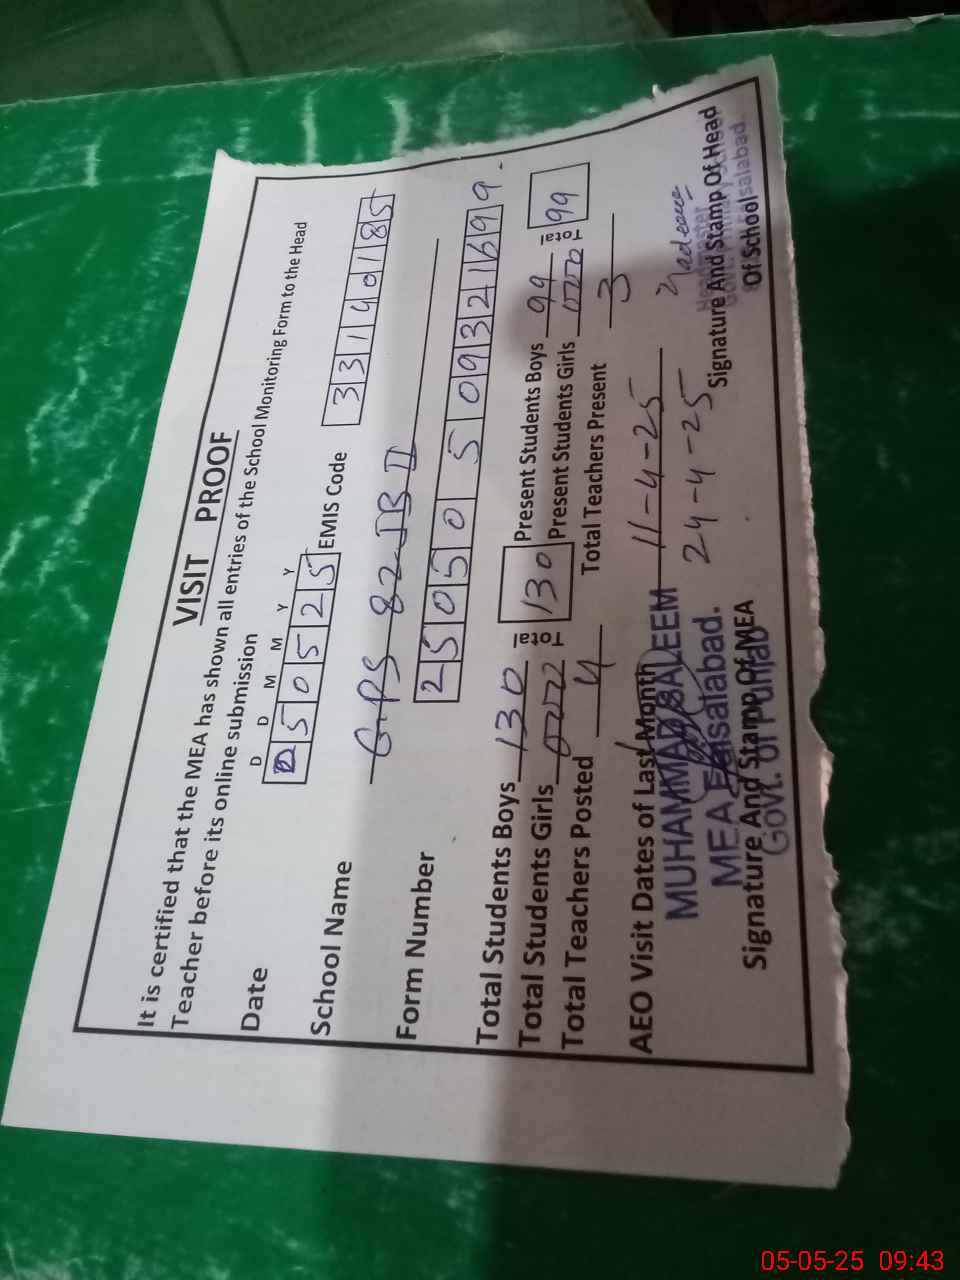 VISIT PROOF
It is certified that the MEA has shown all entries of the School Monitoring Form to the Head
Teacher before its online submission
D D M M Y Y
Date 050525 EMIS Code 33140185
School Name G.PS 82 JB II
Form Number 2505050932169 9.
Total Students Boys 130 Total 130 Present Students Boys 99 Total 99
Total Students Girls Present Students Girls
Total Teachers Posted 4 Total Teachers Present 3
AEO Visit Dates of Last Month 11-4-25
24-4-25
MUHAMMAD SALEEM
MEA Faisalabad.
GOVT. OF Punjab
Signature And Stamp Of MEA
Nadeem
Headmaster
Signature And Stamp Of Head
Of School
05-05-25 09:43